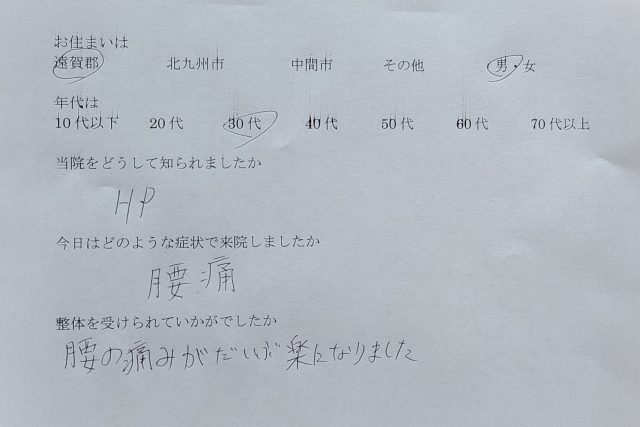 お住まいは
遠賀郡 北九州市 中間市 その他 男・女
年代は
10代以下 20代 30代 40代 50代 60代 70代以上
当院をどうして知られましたか
HP
今日はどのような症状で来院しましたか
腰痛
整体を受けられていかがでしたか
腰の痛みがだいぶ楽になりました